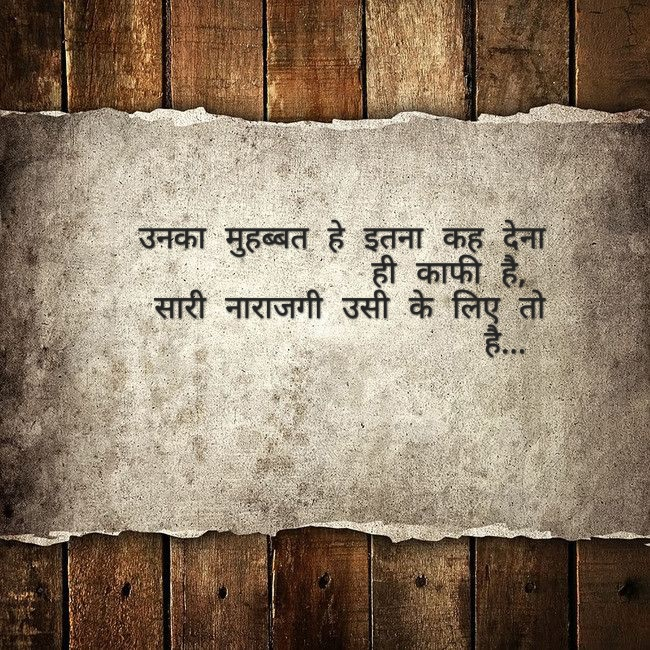 उनका मुहब्बत हे इतना कह देना
ही काफी है,
सारी नाराजगी उसी के लिए तो
है...